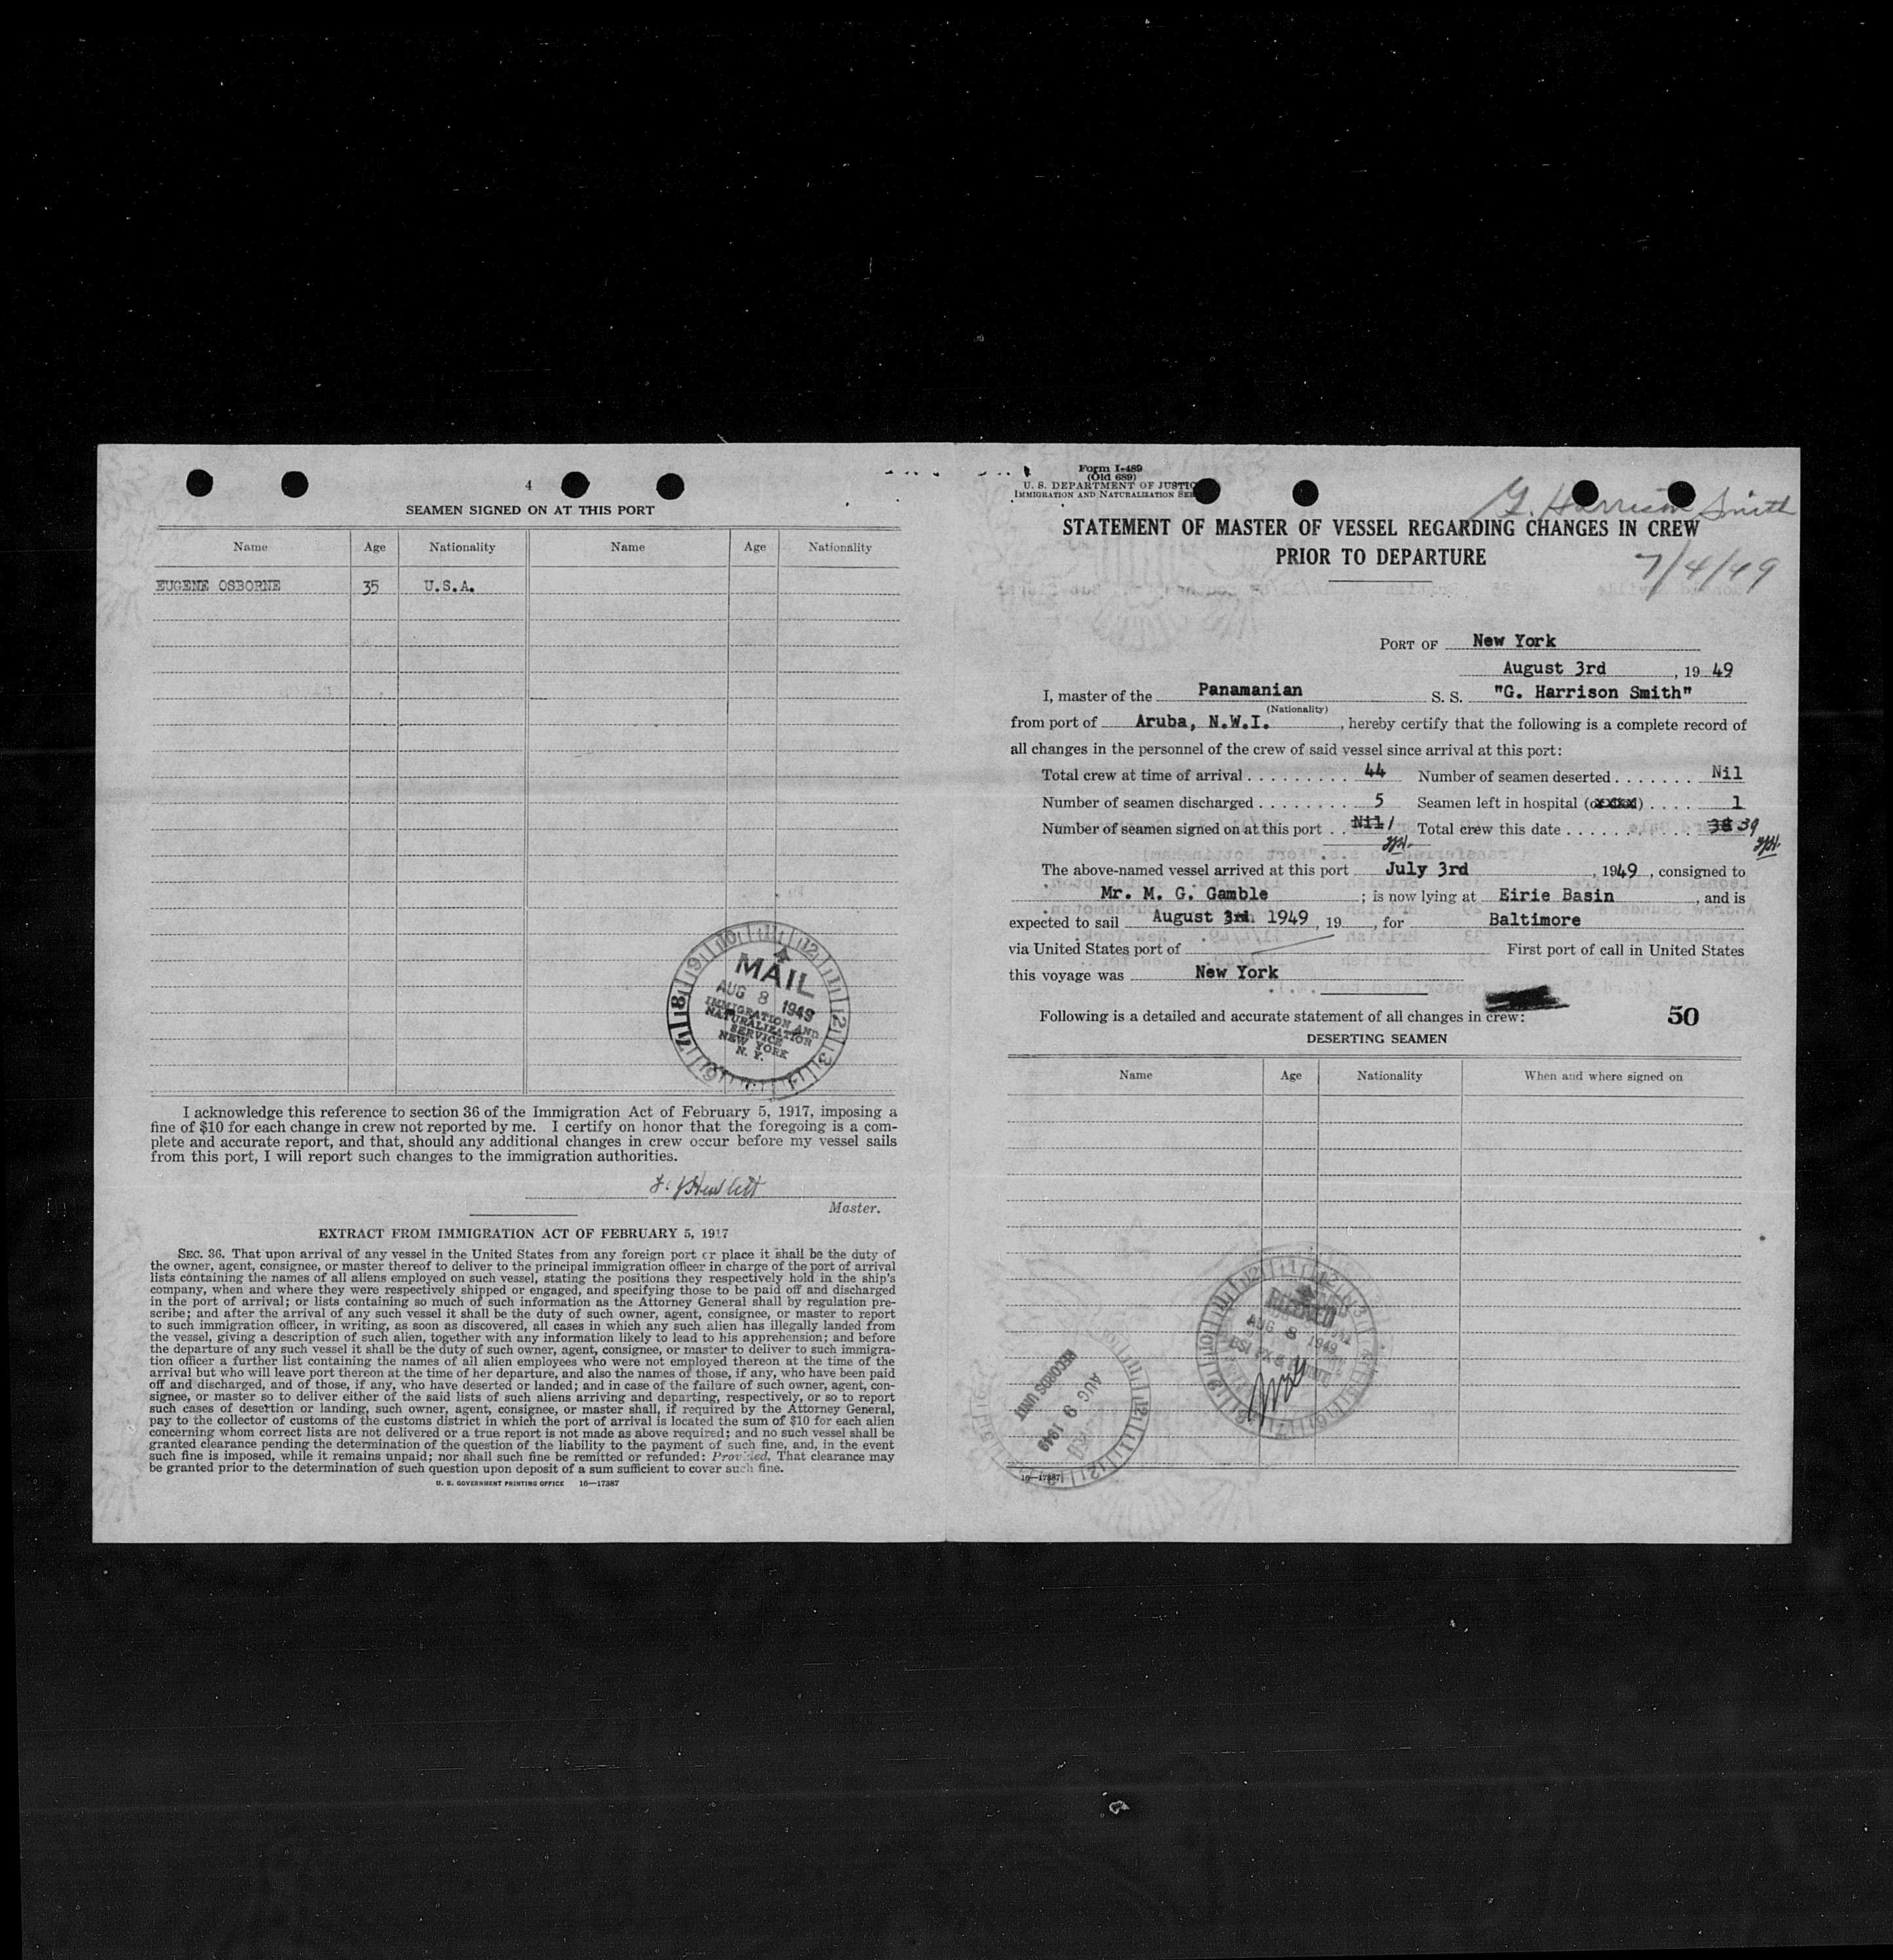 4
SEAMEN SIGNED ON AT THIS PORT
Name Age Nationality Name Age Nationality
EUGENE OSBORNE 35 U.S.A.
MAIL
AUG 8 1949
IMMIGRATION AND
NATURALIZATION
SERVICE
NEW YORK
N. Y.
I acknowledge this reference to section 36 of the Immigration Act of February 5, 1917, imposing a
fine of $10 for each change in crew not reported by me. I certify on honor that the foregoing is a com-
plete and accurate report, and that, should any additional changes in crew occur before my vessel sails
from this port, I will report such changes to the immigration authorities.
Master.
EXTRACT FROM IMMIGRATION ACT OF FEBRUARY 5, 1917
SEC. 36. That upon arrival of any vessel in the United States from any foreign port or place it shall be the duty of
the owner, agent, consignee, or master thereof to deliver to the principal immigration officer in charge of the port of arrival
lists containing the names of all aliens employed on such vessel, stating the positions they respectively hold in the ship's
company, when and where they were respectively shipped or engaged, and specifying those to be paid off and discharged
in the port of arrival; or lists containing so much of such information as the Attorney General shall by regulation pre-
scribe; and after the arrival of any such vessel it shall be the duty of such owner, agent, consignee, or master to report
to such immigration officer, in writing, as soon as discovered, all cases in which any such alien has illegally landed from
the vessel, giving a description of such alien, together with any information likely to lead to his apprehension; and before
the departure of any such vessel it shall be the duty of such owner, agent, consignee, or master to deliver to such immigra-
tion officer a further list containing the names of all alien employees who were not employed thereon at the time of the
arrival but who will leave port thereon at the time of her departure, and also the names of those, if any, who have been paid
off and discharged, and of those, if any, who have deserted or landed; and in case of the failure of such owner, agent, con-
signee, or master so to deliver either of the said lists of such aliens arriving and departing, respectively, or so to report
such cases of desertion or landing, such owner, agent, consignee, or master shall, if required by the Attorney General,
pay to the collector of customs of the customs district in which the port of arrival is located the sum of $10 for each alien
concerning whom correct lists are not delivered or a true report is not made as above required; and no such vessel shall be
granted clearance pending the determination of the question of the liability to the payment of such fine, and, in the event
such fine is imposed, while it remains unpaid; nor shall such fine be remitted or refunded: Provided, That clearance may
be granted prior to the determination of such question upon deposit of a sum sufficient to cover such fine.
U. S. GOVERNMENT PRINTING OFFICE 16—17387
Form I-489
(Old 689)
U. S. DEPARTMENT OF JUSTIC
IMMIGRATION AND NATURALIZATION SE
G. Harrison Smith
STATEMENT OF MASTER OF VESSEL REGARDING CHANGES IN CREW
PRIOR TO DEPARTURE
7/4/49
PORT OF New York
August 3rd, 19 49
I, master of the Panamanian S. S. "G. Harrison Smith"
(Nationality)
from port of Aruba, N.W.I., hereby certify that the following is a complete record of
all changes in the personnel of the crew of said vessel since arrival at this port:
Total crew at time of arrival . . . . . . . . . . 44 Number of seamen deserted . . . . . . . Nil
Number of seamen discharged . . . . . . . . 5 Seamen left in hospital (oxxxx) . . . . 1
Number of seamen signed on at this port . . Nil 1 Total crew this date . . . . . . . . . . . 38 39
The above-named vessel arrived at this port July 3rd, 1949, consigned to
Mr. M. G. Gamble; is now lying at Eirie Basin, and is
expected to sail August 3rd. 1949, 19 , for Baltimore
via United States port of First port of call in United States
this voyage was New York
Following is a detailed and accurate statement of all changes in crew: 50
DESERTING SEAMEN
Name Age Nationality When and where signed on
AUG 8 1949
RECORDS UNIT
AUG 9 1949
16—17387